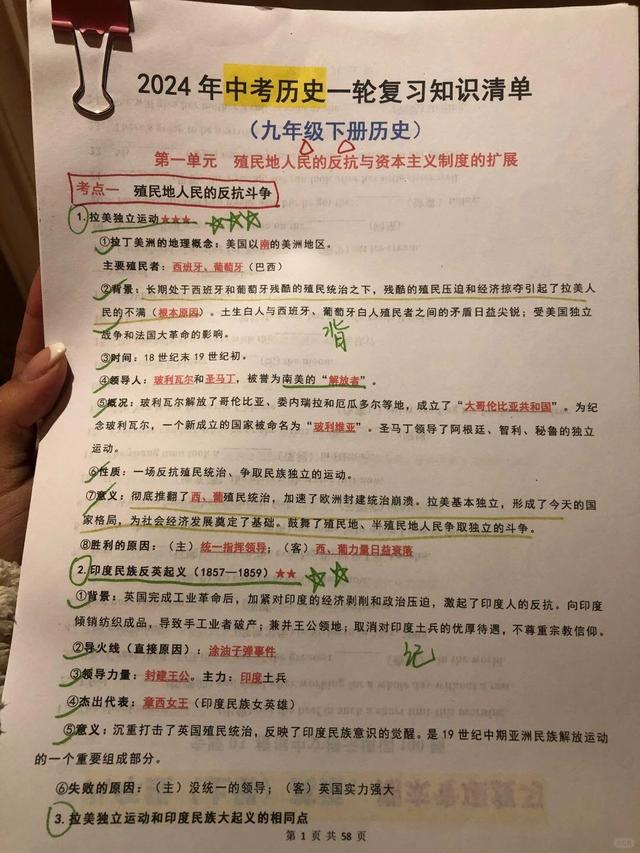 2024年中考历史一轮复习知识清单
（九年级下册历史）
第一单元 殖民地人民的反抗与资本主义制度的扩展
考点一 殖民地人民的反抗斗争
1.拉美独立运动★★★ ☆☆☆
①拉丁美洲的地理概念：美国以南的美洲地区。
主要殖民者：西班牙、葡萄牙（巴西）
②背景：长期处于西班牙和葡萄牙残酷的殖民统治之下，残酷的殖民压迫和经济掠夺引起了拉美人
民的不满（根本原因）。土生白人与西班牙、葡萄牙白人殖民者之间的矛盾日益尖锐；受美国独立
战争和法国大革命的影响。
背
③时间：18世纪末19世纪初。
④领导人：玻利瓦尔和圣马丁，被誉为南美的“解放者”。
⑤概况：玻利瓦尔解放了哥伦比亚、委内瑞拉和厄瓜多尔等地，成立了“大哥伦比亚共和国”。为纪
念玻利瓦尔，一个新成立的国家被命名为“玻利维亚”。圣马丁领导了阿根廷、智利、秘鲁的独立
运动。
⑥性质：一场反抗殖民统治、争取民族独立的运动。
⑦意义：彻底推翻了西、葡殖民统治，加速了欧洲封建统治崩溃。拉美基本独立，形成了今天的国
家格局，为社会经济发展奠定了基础。鼓舞了殖民地、半殖民地人民争取独立的斗争。
⑧胜利的原因：（主）统一指挥领导；（客）西、葡力量日益衰落
2.印度民族反英起义（1857—1859）★★ ☆☆
①背景：英国完成工业革命后，加紧对印度的经济剥削和政治压迫，激起了印度人的反抗。向印度
倾销纺织成品，导致手工业者破产；兼并王公领地；取消对印度土兵的优厚待遇，不尊重宗教信仰。
②导火线（直接原因）：涂油子弹事件
记
③领导力量：封建王公。主力：印度土兵
④杰出代表：章西女王（印度民族女英雄）
⑤意义：沉重打击了英国殖民统治，反映了印度民族意识的觉醒。是19世纪中期亚洲民族解放运动
的一个重要组成部分。
⑥失败的原因：（主）没统一的领导；（客）英国实力强大
3.拉美独立运动和印度民族大起义的相同点
第 1 页 共 58 页